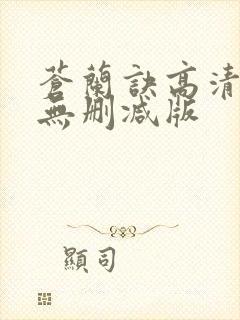 蒼蘭訣高清
無刪減版
顯司